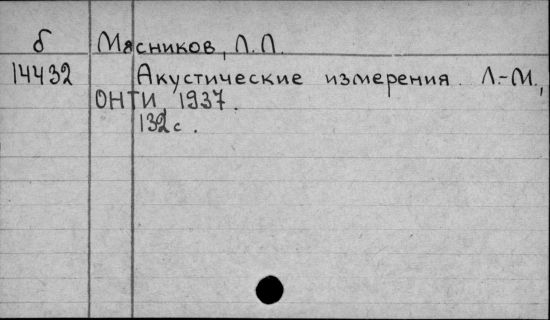 б Мясников, Л.Л.
14432 Акустические измерения. Л.-М.,
ОНТИ, 1937.
132 с.